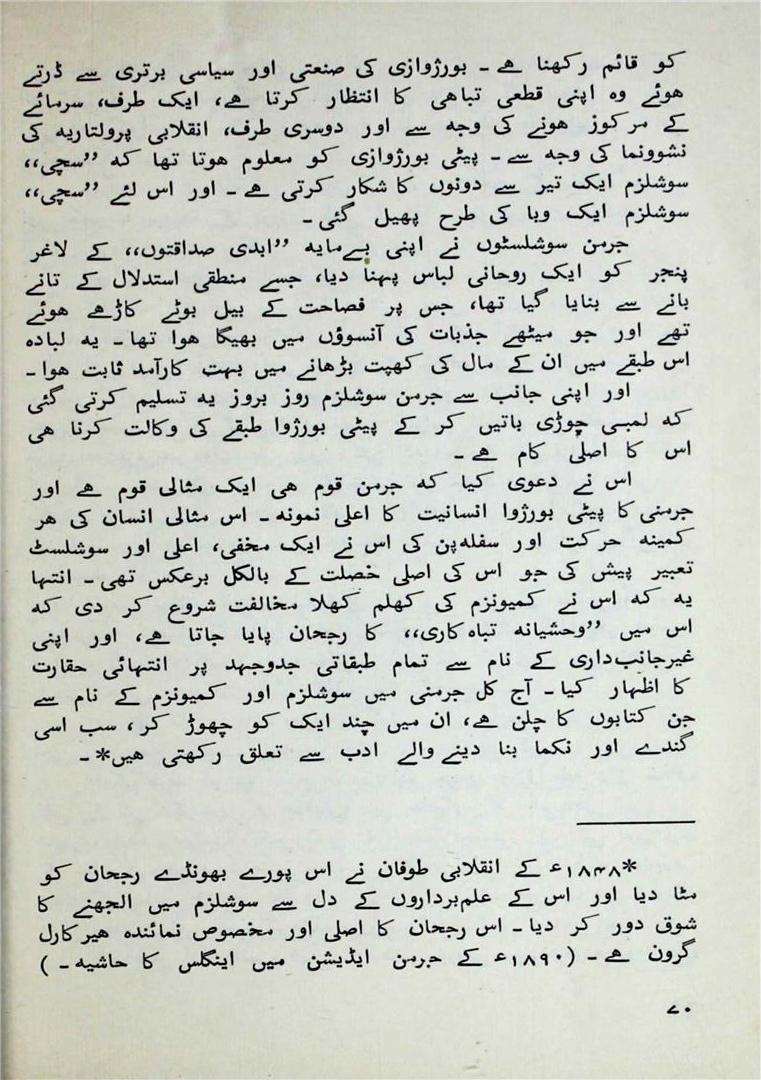 کو قائم رکھنا ہے ۔ بورژوازی کی صنعتی اور سیاسی برتری سے ڈرتے
ہوئے وہ اپنی قطعی تباہی کا انتظار کرتا ہے، ایک طرف، سرمائے
کے مرکوز ہونے کی وجہ سے اور دوسری طرف، انقلابی پرولتاریہ کی
نشوونما کی وجہ سے ۔ پیٹی بورژوازی کو معلوم ہوتا تھا کہ ”سچی،،
سوشلزم ایک تیر سے دونوں کا شکار کرتی ہے ۔ اور اس لئے ”سچی،،
سوشلزم ایک وبا کی طرح پھیل گئی ۔
جرمن سوشلسٹوں نے اپنی بےمایہ ”ابدی صداقتوں،، کے لاغر
پنجر کو ایک روحانی لباس پہنا دیا، جسے منطقی استدلال کے تانے
بانے سے بنایا گیا تھا، جس پر فصاحت کے بیل بوٹے کاڑھے ہوئے
تھے اور جو میٹھے جذبات کی آنسوؤں میں بھیگا ہوا تھا ۔ یہ لبادہ
اس طبقے میں ان کے مال کی کھپت بڑھانے میں بہت کارآمد ثابت ہوا ۔
اور اپنی جانب سے جرمن سوشلزم روز بروز یہ تسلیم کرتی گئی
کہ لمبی چوڑی باتیں کر کے پیٹی بورژوا طبقے کی وکالت کرنا ہی
اس کا اصلی کام ہے ۔
اس نے دعوی کیا کہ جرمن قوم ہی ایک مثالی قوم ہے اور
جرمنی کا پیٹی بورژوا انسانیت کا اعلی نمونہ ۔ اس مثالی انسان کی ہر
کمینہ حرکت اور سفلہ‌پن کی اس نے ایک مخفی، اعلی اور سوشلسٹ
تعبیر پیش کی جو اس کی اصلی خصلت کے بالکل برعکس تھی ۔ انتہا
یہ کہ اس نے کمیونزم کی کھلم کھلا مخالفت شروع کر دی کہ
اس میں ”وحشیانہ تباہ کاری،، کا رجحان پایا جاتا ہے، اور اپنی
غیرجانب‌داری کے نام سے تمام طبقاتی جدوجہد پر انتہائی حقارت
کا اظہار کیا ۔ آج کل جرمنی میں سوشلزم اور کمیونزم کے نام سے
جن کتابوں کا چلن ہے، ان میں چند ایک کو چھوڑ کر، سب اسی
گندے اور نکما بنا دینے والے ادب سے تعلق رکھتی ہیں* ۔
*۱۸۴۸ء کے انقلابی طوفان نے اس پورے بھونڈے رجحان کو
مٹا دیا اور اس کے علم‌برداروں کے دل سے سوشلزم میں الجھنے کا
شوق دور کر دیا ۔ اس رجحان کا اصلی اور مخصوص نمائندہ ہیر کارل
گرون ہے ۔ (۱۸۹۰ء کے جرمن ایڈیشن میں اینگلس کا حاشیہ ۔ )
۷۰